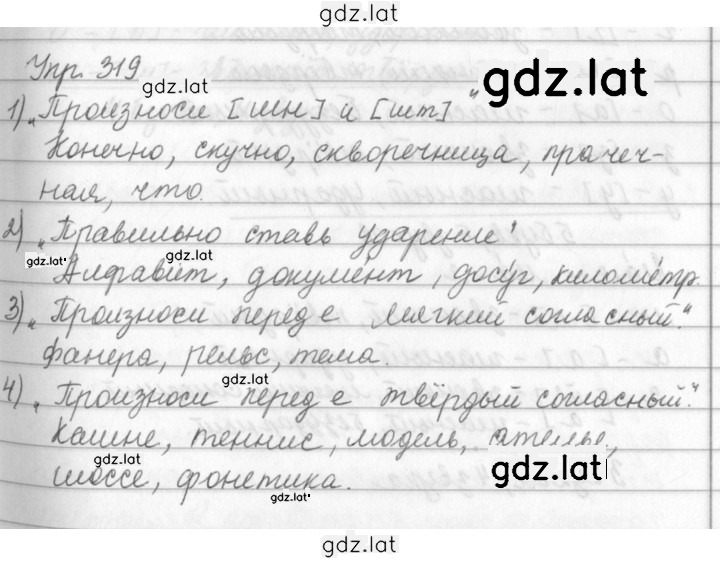 gdz.lat
Упр. 319
gdz.lat
gdz.lat
1) „Произноси [шн] и [шт]"
Конечно, скучно, скворечница, прачеч-
ная, что.
2) „Правильно ставь ударение"
gdz.lat
gdz.lat
Алфави́т, докуме́нт, досу́г, киломе́тр.
3) „Произноси перед е мягкий согласный."
фанера, рельс, тема.
gdz.lat
4) „Произноси перед е твёрдый согласный."
Кашне, теннис, модель, ателье,
gdz.lat
gdz.lat
шоссе, фонетика.
gdz.lat
gdz.lat